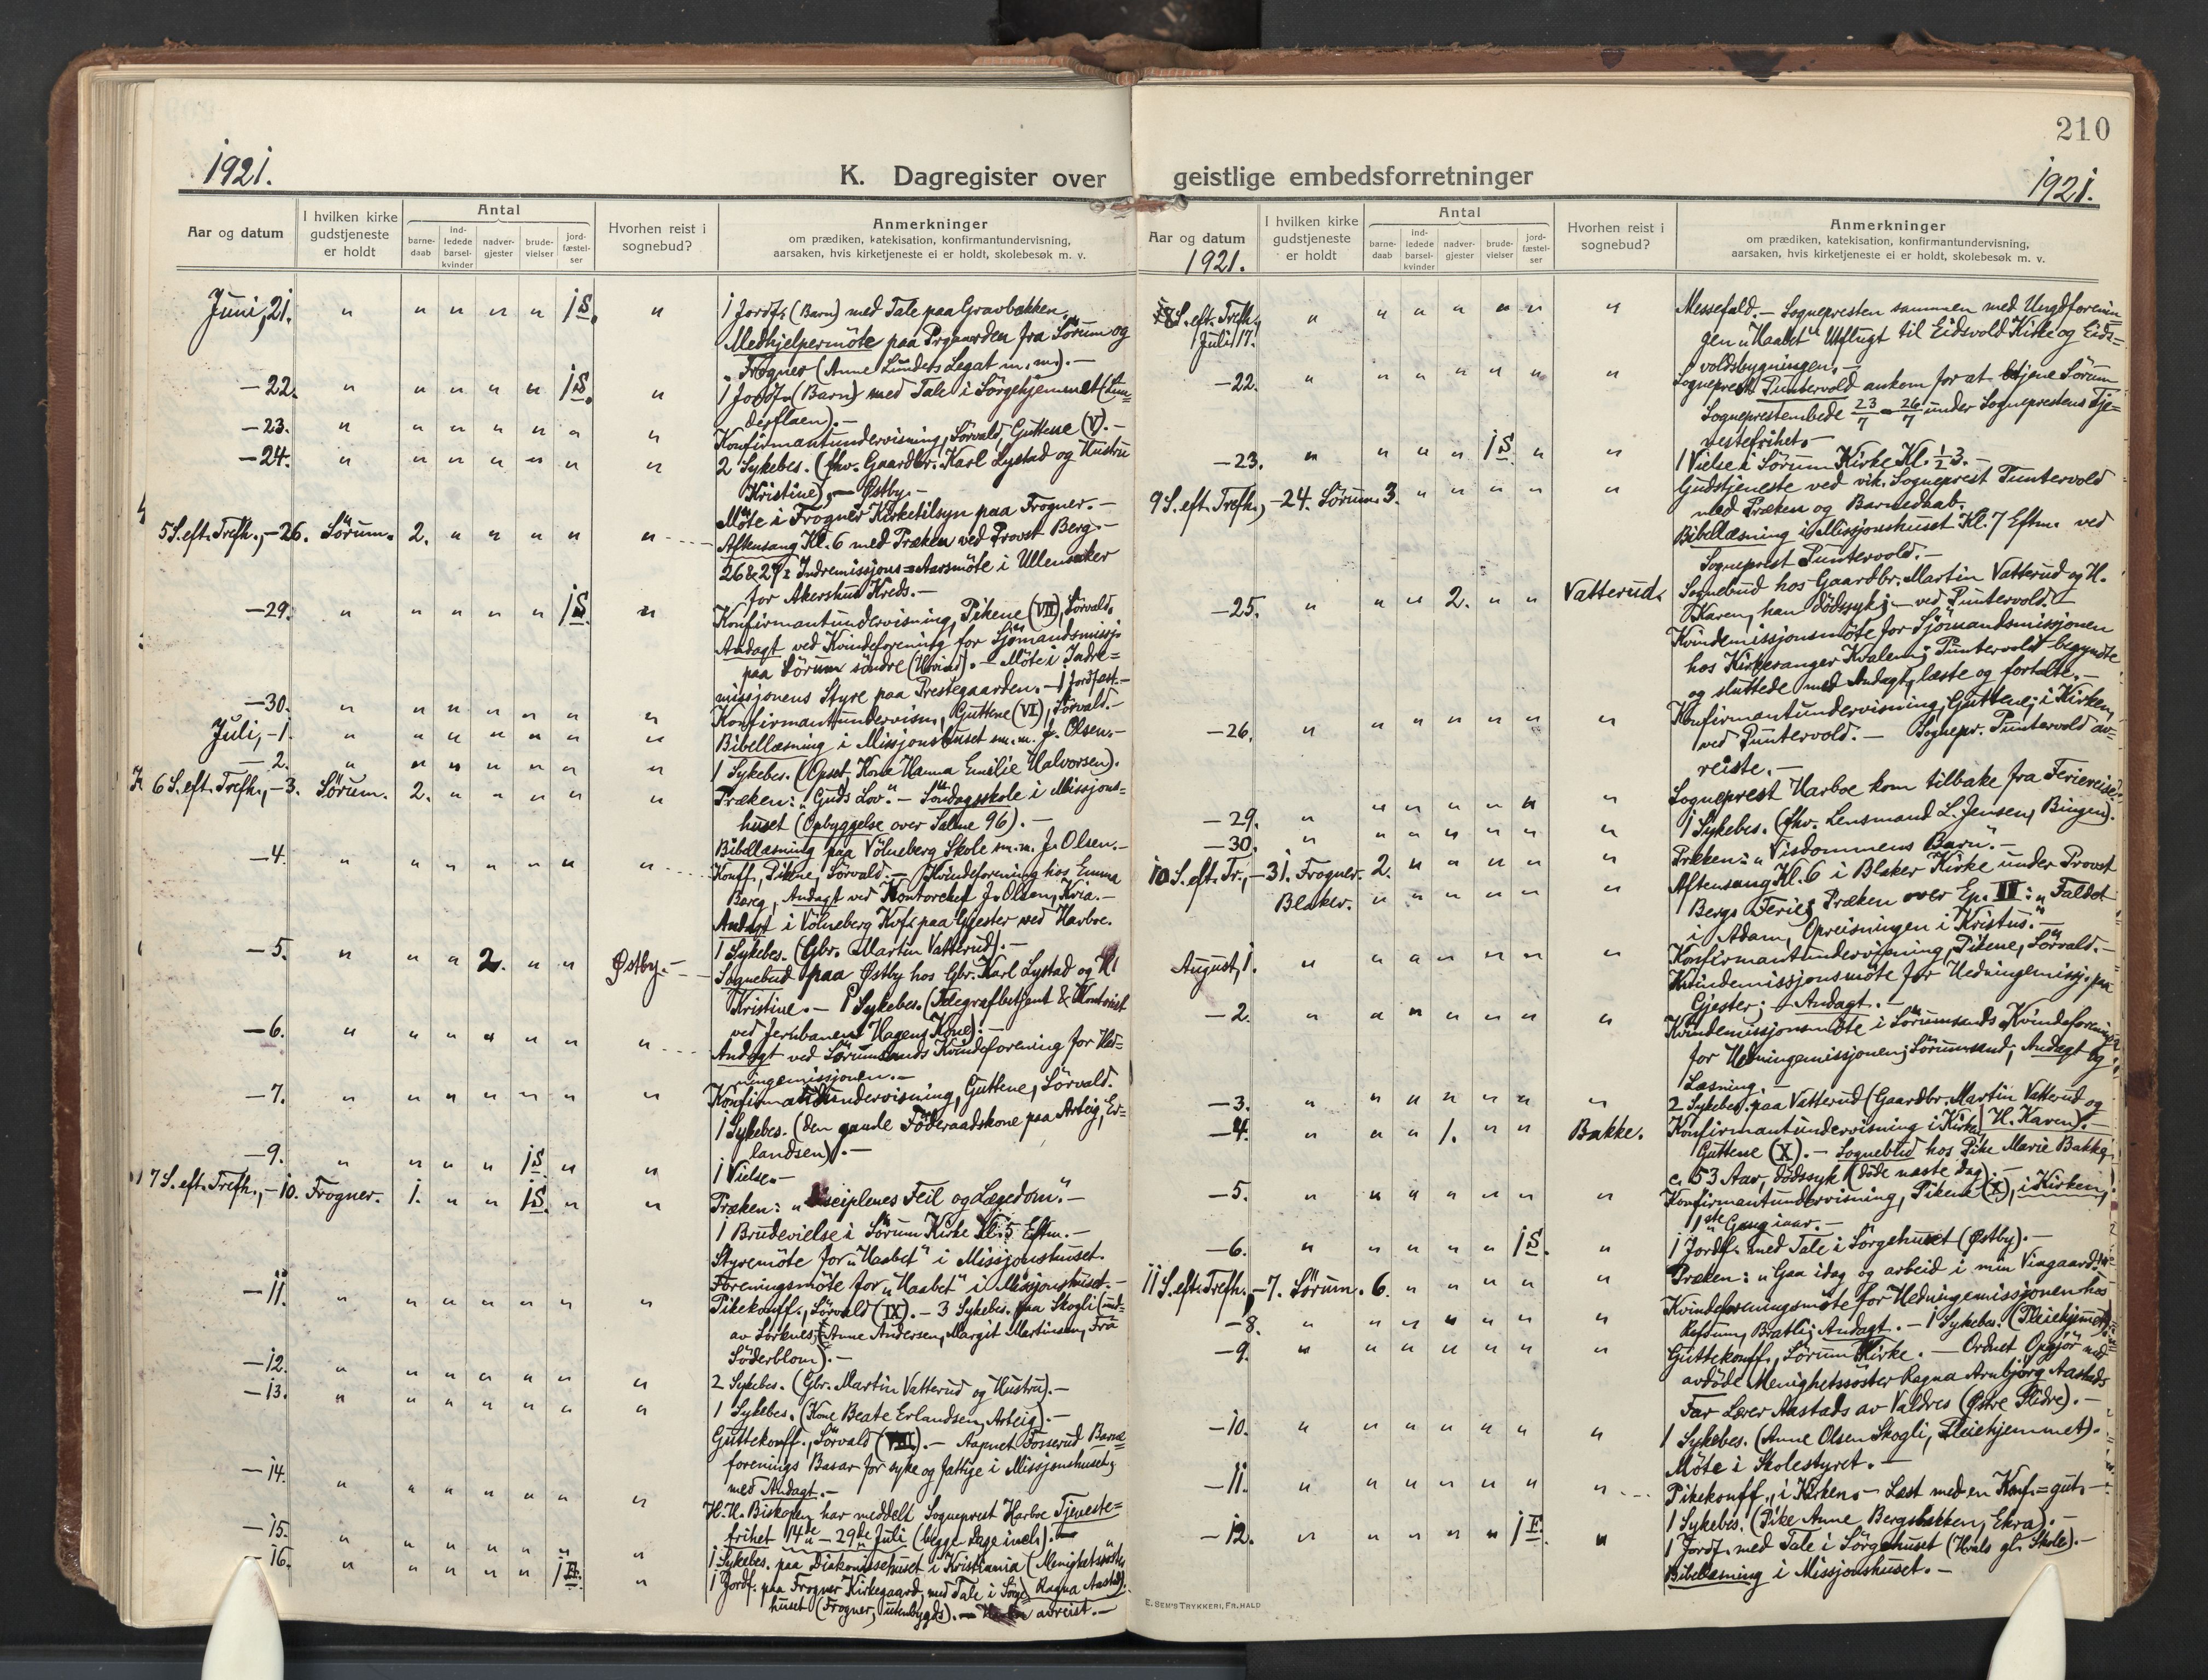 210
1921.
K. Dagregister over
Aar og datum
I hvilken kirke gudstjeneste er holdt
Antal
barne-daab
ind-ledede barsel-kvinder
nadver-gjester
brude-vielser
jord-fæstel-ser
Hvorhen reist i sognebud?
Anmerkninger
om prædiken, katekisation, konfirmantundervisning,
aarsaken, hvis kirketjeneste ei er holdt, skolebesøk m. v.
Juni, 21. " " " " " 1 S. " 1 Jordf. (Barn) med Tale paa Gravbakken.
Medhjelpermöte paa Prgaarden fra Sörum og
Frogner (Anne Lunders Legat m. m.). —
— 22. " " " " " 1 S. " 1 Jordf. (Barn) med Tale i Sörgehjemmet (Lun=
derflaen). —
— 23. " " " " " " " Konfirmantundervisning, Sörvald, Guttene (V). —
— 24. " " " " " " " 2 Sykebes. (fhv. Gaardbr. Karl Lystad og Hustru
Kristine), — Østby. —
Möte i Frogner Kirketilsyn paa Frogner. —
5 S. eft. Trefh., — 26. Sörum. 2. " " " " " Aftensang Kl. 6 med Præken ved Provst Berg. —
26 & 27: Indremissjons=Aarsmöte i Ullensaker
for Akershus Kreds. —
— 29. " " " " " 1 S. " Konfirmantundervisning, Pikene (VII), Sörvald.
Andagt ved Kvindeforening for Sjömandsmissj.
paa Sörum söndre (Hvind). — Möte i Indre=
missjonens Styre paa Prestegaarden. — 1 Jordfæst. —
— 30. " " " " " " " Konfirmantundervisn., Guttene (VI), Sörvald. —
Juli, — 1. " " " " " " " Bibellæsning i Missjonshuset m. m. J. Olsen. —
— 2. " " " " " " " 1 Sykebes. (Opset, Kone Hanna Emilie Halvorsen).
6 S. eft. Trefh., — 3. Sörum. 2. " " " " " Præken: "Guds Lov." — Söndagsskole i Missjons=
huset (Opbyggelse over Salme 96). —
Bibellæsning paa Völneberg Skole m. m. J. Olsen. —
— 4. " " " " " " " Konff., Pikene, Sörvald. — Kvindeforening hos Emma
Berg, Andagt ved Kontorchef J. Olsen, Kria. —
Andagt i Völneberg Kvf. paa Gjester ved Harboe.
1 Sykebes. (Gbr. Martin Vatterud). —
— 5. " " " 2. " " Østby. — Sognebud paa Østby hos Gbr. Karl Lystad og H.
Kristine. — 1 Sykebes. (Telegrafbetjent & Kontorist
ved Jernbanen Hagens Kone). —
— 6. " " " " " " " Andagt ved Sörumsands Kvindeforening for Hed=
ningemissjonen. —
— 7. " " " " " " " Konfirmantundervisning, Guttene, Sörvald.
1 Sykebes. (den gamle Föderaadskone paa Arteig, Er=
landsen). —
— 9. " " " " 1 S. " " 1 Vielse. —
7 S. eft. Trefh., — 10. Frogner. 1. " " 1 S. " " Præken: "Disciplenes Feil og Lægedom." —
1 Brudevielse i Sörum Kirke Kl. 5 Eftm. —
Styremöte for "Haabet" i Missjonshuset.
Foreningsmöte for "Haabet" i Missjonshuset. —
— 11. " " " " " " " Pikekonff., Sörvald (IX). — 3 Sykebes. paa Skogli (ind=
av Sörknes, (Anne Andersen, Margit Martinsen, Fra
Söderblom). —
— 12. " " " " " " " 2 Sykebes. (Gbr. Martin Vatterud og Hustru). —
— 13. " " " " " " " 1 Sykebes. (Kone Beate Erlandsen, Arteig). —
Guttekonff., Sörvald (VIII). — Aapnet Fosserud Barne=
forenings Basar for syke og fattige i Missjonshuset,
med Andagt. —
— 14. " " " " " " " H. H. Biskopen har meddelt Sogneprest Harboe Tjeneste=
frihet 14de — 29de Juli (begge dage incl.). —
— 15. " " " " " " " 1 Sykebes. paa Diakonissehuset i Kristiania (Menighetssöster
Ragna Aastad).
— 16. " " " " " 1 F. " 1 Jordf. paa Frogner Kirkegaard, med Tale i Sörge=
huset (Frogner, utenbygds). — avreist. —
geistlige embedsforretninger
1921.
Aar og datum
1921.
I hvilken kirke gudstjeneste er holdt
Antal
barne-daab
ind-ledede barsel-kvinder
nadver-gjester
brude-vielser
jord-fæstel-ser
Hvorhen reist i sognebud?
Anmerkninger
om prædiken, katekisation, konfirmantundervisning,
aarsaken, hvis kirketjeneste ei er holdt, skolebesøk m. v.
8 S. eft. Trefh., Juli 17. " " " " " " " Messefald. — Sognepresten sammen med Ungdforenin
gen "Haabet" Utflugt til Eidsvold Kirke og Eids=
voldsbygningen. —
— 22. " " " " " " " Sogneprest Puntervold ankom for at betjene Sörum
Sogneprestembede 23/7 – 26/7 under Sogneprestens Tje=
nestefrihet. —
— 23. " " " " 1 S. " " 1 Vielse i Sörum Kirke Kl. ½ 3. —
9 S. eft. Trefh., — 24. Sörum. 3. " " " " " Gudstjeneste ved vik. Sogneprest Puntervold
med Præken og Barnedaab.
Bibellæsning i Missjonshuset Kl. 7 Eftm. ved
Sogneprest Puntervold. —
— 25. " " " 2. " " Vatterud. Sognebud hos Gaardbr. Martin Vatterud og H.
Karen, han dödssyk; — ved Puntervold. —
Kvindemissjonsmöte for Sjömandsmissjonen
hos Kirkesanger Kvalem; Puntervold begyndte
og sluttede med Andagt, læste og fortalte. —
— 26. " " " " " " " Konfirmantundervisning, Guttene; i Kirken,
ved Puntervold. — Sognepr. Puntervold av=
reiste. —
Sogneprest Harboe kom tilbake fra Feriereise.
— 29. " " " " " " " 1 Sykebes. (fhv. Lensmand L. Jensen, Bingen).
— 30. " " " " " " "
10 S. eft. Tr., — 31. Frogner. 2. " " " " " Præken: "Visdommens Barn." —
Blaker. " " " " " " Aftensang Kl. 6 i Blaker Kirke under Provst
Bergs Ferie; Præken over Ep. II: "Faldet
i Adam, Opreisningen i Kristus." —
August, 1. " " " " " " " Konfirmantundervisning, Pikene, Sörvald. —
Kvindemissjonsmöte for Hedningemissj. paa
Gjester; — Andagt. —
— 2. " " " " " " " Kvindemissjonsmöte i Sörumsands Kvindeforening
for Hedningemissjonen; Sörumsand; Andagt og
Læsning. —
— 3. " " " " " " " 2 Sykebes. paa Vatterud (Gaardbr. Martin Vatterud og
H. Karen). —
— 4. " " " 1. " " Bakke. Konfirmantundervisning i Kirken,
Guttene (X). — Sognebud hos Pike Marie Bakke,
c. 53 Aar, dödssyk (döde næste dag). —
— 5. " " " " " " " Konfirmantundervisning, Pikene (X), i Kirken,
1ste Gang iaar. —
— 6. " " " " " 1 S. " 1 Jordf. med Tale i Sörgehuset (Østby). —
11 S. eft. Trefh., — 7. Sörum. 6. " " " " " Præken: "Gaa idag og arbeid i min Vingaard." —
Kvindeforeningsmöte for Hedningemissjonen hos
— 8. " " " " " " " Refsum, Bratli; Andagt. — 1 Sykebes. (Pleiehjemmet).
— 9. " " " " " " " Guttekonff., Sörum Kirke. — Ordnet Opgjör med
avdöde Menighetssöster Ragna Arnbjörg Aastads
Far Lærer Aastads av Valdres (Østre Slidre). —
— 10. " " " " " " " 1 Sykebes. (Anne Olsen Skogli, Pleiehjemmet).
Möte i Skolestyret. —
— 11. " " " " " " " Pikekonff., i Kirken. — Læst med en Konf.=gut. —
1 Sykebes. (Pike Anne Bergsbakken, Ekra). —
— 12. " " " " " 1 F. " 1 Jordf. med Tale i Sörgehuset (Hvals gl. Skole). —
Bibellæsning i Missjonshuset. —
E. SEM'S TRYKKERI, FR.HALD